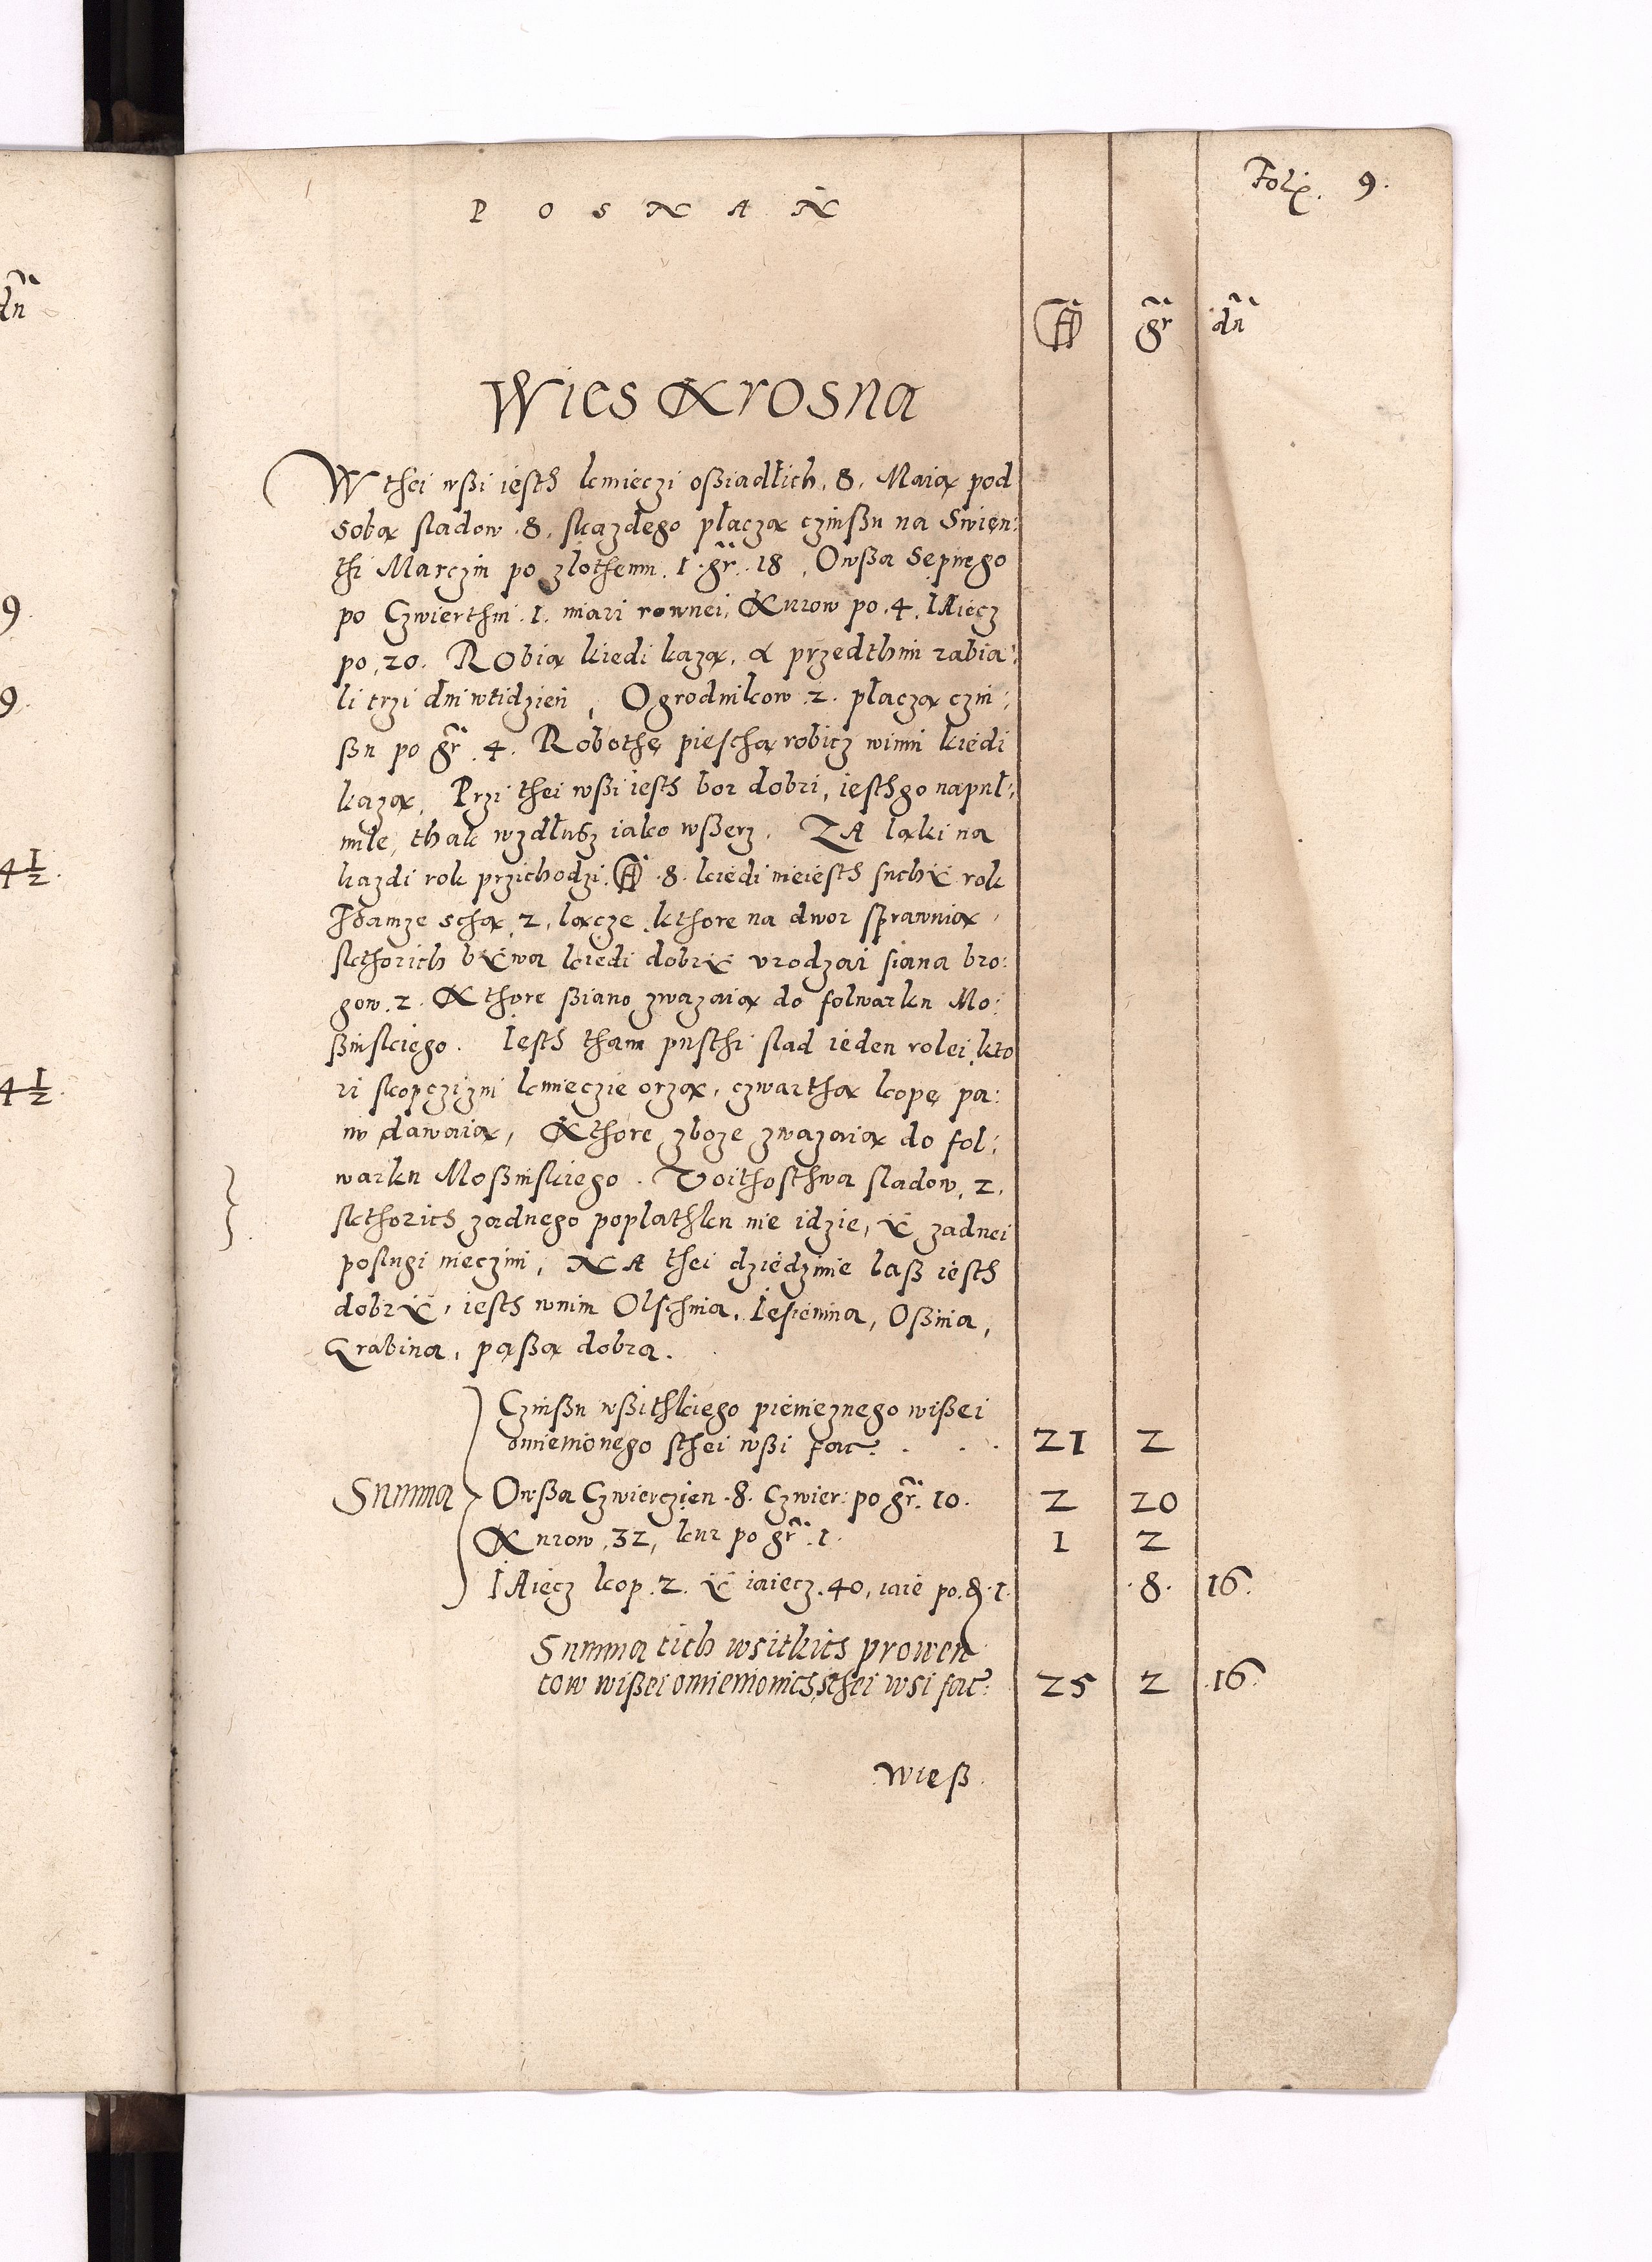 dn
9.
9.
4 1/2.
4 1/2.
Folio. 9.
P O S N A Ń
fl gr dn
Wies Krosna
W thei wßi iesth kmieczi oßiadłich, 8, Maią pod
sobą sladow .8, skazdego płaczą czinßu na Swięn:
thi Marczin po złothemu. 1. gr. 18, Owßa Sepnego
po Czwierthni .1. miari rownei, Kurow po .4. IAiecz
po, 20. RObią kiedi kazą, a przedthim rabia:
li trzi dni wtidzień, Ogrodnikow .2. płaczą czin:
ßu po gr .4. Robothę pieschą robicz winni kiedi
kazą, Przi thei wßi iesth bor dobri, iesthgo napuł:
mile, thak wzdłusz iako wßerz. ZA ląki na
kazdi rok przichodzi fl .8. kiedi nieiesth suchÿ rok
Thamze schą 2, lącze kthore na dwor sprawuią,
skthorich bÿwa kiedi dobrÿ vrodzai siana bro:
gow. 2. Kthore ßiano zwazaią do folwarku Mo:
ßinskięgo. Iesth tham pusthi slad ieden rolei, kto
ri skopczizni kmieczie orzą, czwarthą kopę pa:
nu dawaią, Kthore zboze zwazaią do fol:
warku Moßinskiego. Voithosthwa sladow, 2,
skthorich zadnego poplathku nie idzie, ÿ zadnei
poslugi nieczini, NA thei dziedzinie laß iesth
dobrÿ, iesth wnim Olschina, Iesienina, Oßina,
Grabina, paßą dobra.
Czinßu wßithkiego pienieznego wißei
omienionego sthei wßi fac: . . . 21 2
Summa Owßa Czwierczien .8. Czwier: po gr. 10. 2 20
Kurow, 32, kur po gr .1. 1 2
IAiecz kop .2. ÿ iaiecz .40, iaie po. δ .1. .8. 16.
Summa tich wsitkich prowen
tow wißei omienionich sthei wsi fac: 25 2 .16.
Wieß.